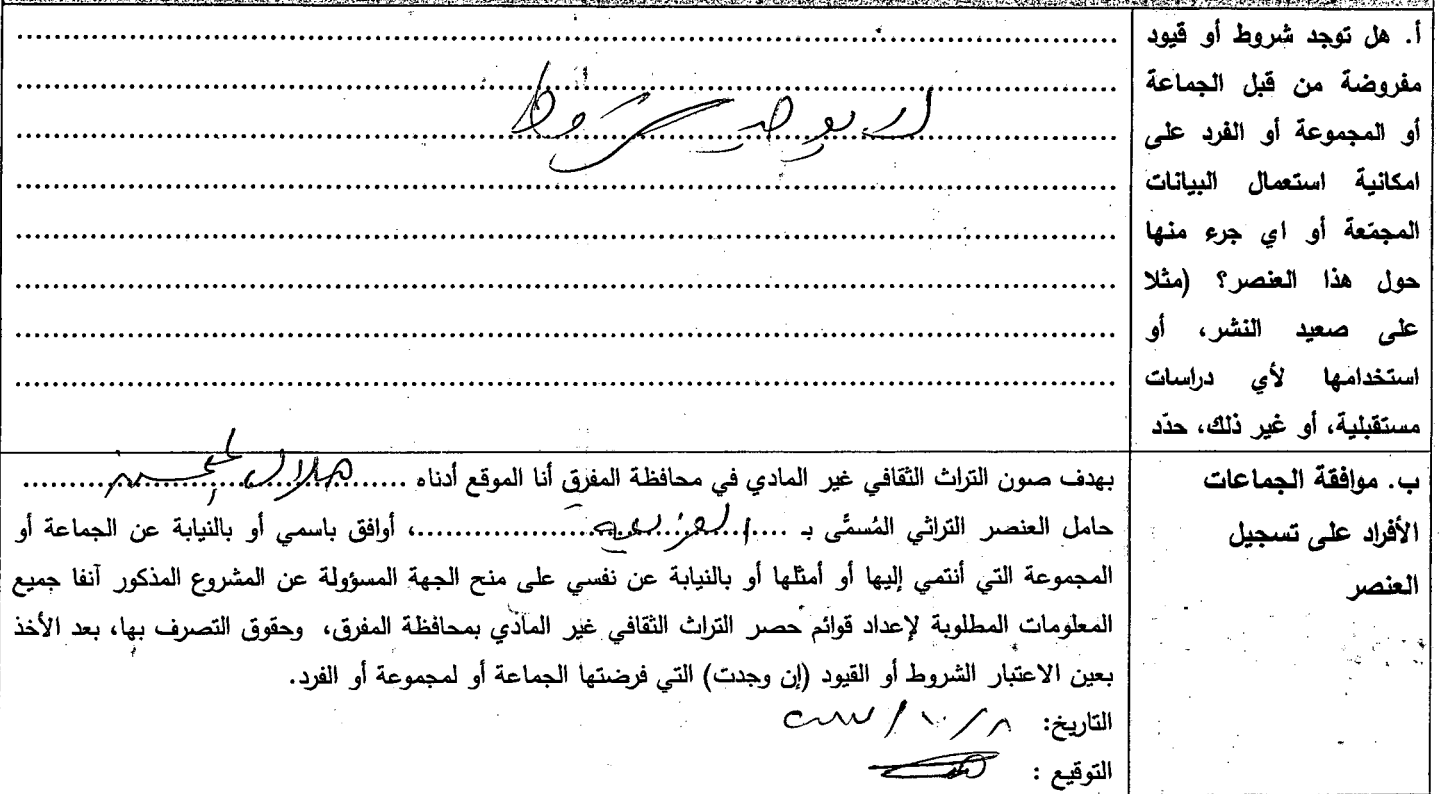 أ. هل توجد شروط أو قيود
مفروضة من قبل الجماعة
أو المجموعة أو الفرد على
امكانية استعمال البيانات
المجمّعة أو اي جرء منها
حول هذا العنصر؟ (مثلا
على صعيد النشر، أو
استخدامها لأي دراسات
مستقبلية، أو غير ذلك، حدّد
لا يوجد شروط
ب. موافقة الجماعات
الأفراد على تسجيل
العنصر
بهدف صون التراث الثقافي غير المادي في محافظة المفرق أنا الموقع أدناه ......هلال
حامل العنصر التراثي المُسمَّى بـ ..........، أوافق باسمي أو بالنيابة عن الجماعة أو
المجموعة التي أنتمي إليها أو أمثلها أو بالنيابة عن نفسي على منح الجهة المسؤولة عن المشروع المذكور آنفا جميع
المعلومات المطلوبة لإعداد قوائم حصر التراث الثقافي غير المادّي بمحافظة المفرق، وحقوق التصرف بها، بعد الأخذ
بعين الاعتبار الشروط أو القيود (إن وجدت) التي فرضتها الجماعة أو لمجموعة أو الفرد.
التاريخ: ٨ / ١٠ /
التوقيع :